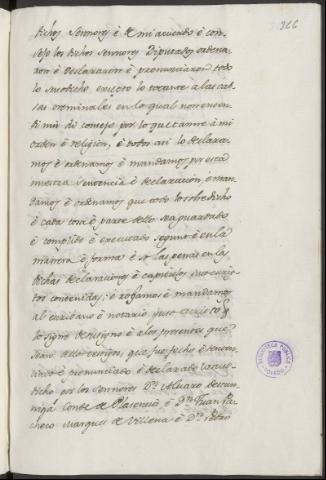 366
dichos Sennores è de mi acuerdo è con-
sejo los dichos Sennores Diputados ordena-
ron è declararon è pronunciaron todo
lo susodicho excepto lo tocante a las co-
sas creminales en lo qual non enten-
di nin di consejo por lo que tanne à mi
orden è religion, è todos asi lo declara-
mos è ordenamos è mandamos por esta
nuestra sentencia è declaracion, è man-
damos è ordenamos que todo lo sobredicho
è cada cosa è parte dello sea guardado
è complido è executado segunt è en la
manera è forma è so las penas en las
dichas declaraciones è capitulos suso escrip-
tos contenidas; è rogamos è mandamos
al escribano è notario suso escripto q
lo signe de su signo è à los presentes que
sean dello testigos, que fue fecho è senten-
ciado è pronunciado è declarado lo suso-
dicho por los Sennores Dn. Alvaro Destun-
niga Conde de Plasencia è Dn. Juan Pa-
checo Marques de Villena è Dn. Pedro
BIBLIOTECA PUBLICA
TOLEDO